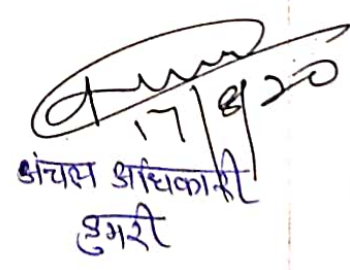 17/8/20
अंचल अधिकारी
डुमरी